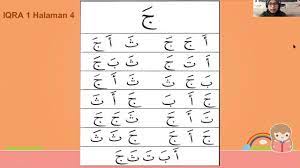 IQRA 1 Halaman 4
جَ
أَ جَ جَ ثَ أَ جَ
أَ تَ جَ ثَ بَ جَ
بَ جَ ثَ تَ أَ جَ
جَ أَ بَ جَ أَ ثَ
جَ تَ نَ ثَ جَ جَ
جَ أَ جَ جَ ثَ ثَ
أَ بَ تَ ثَ جَ